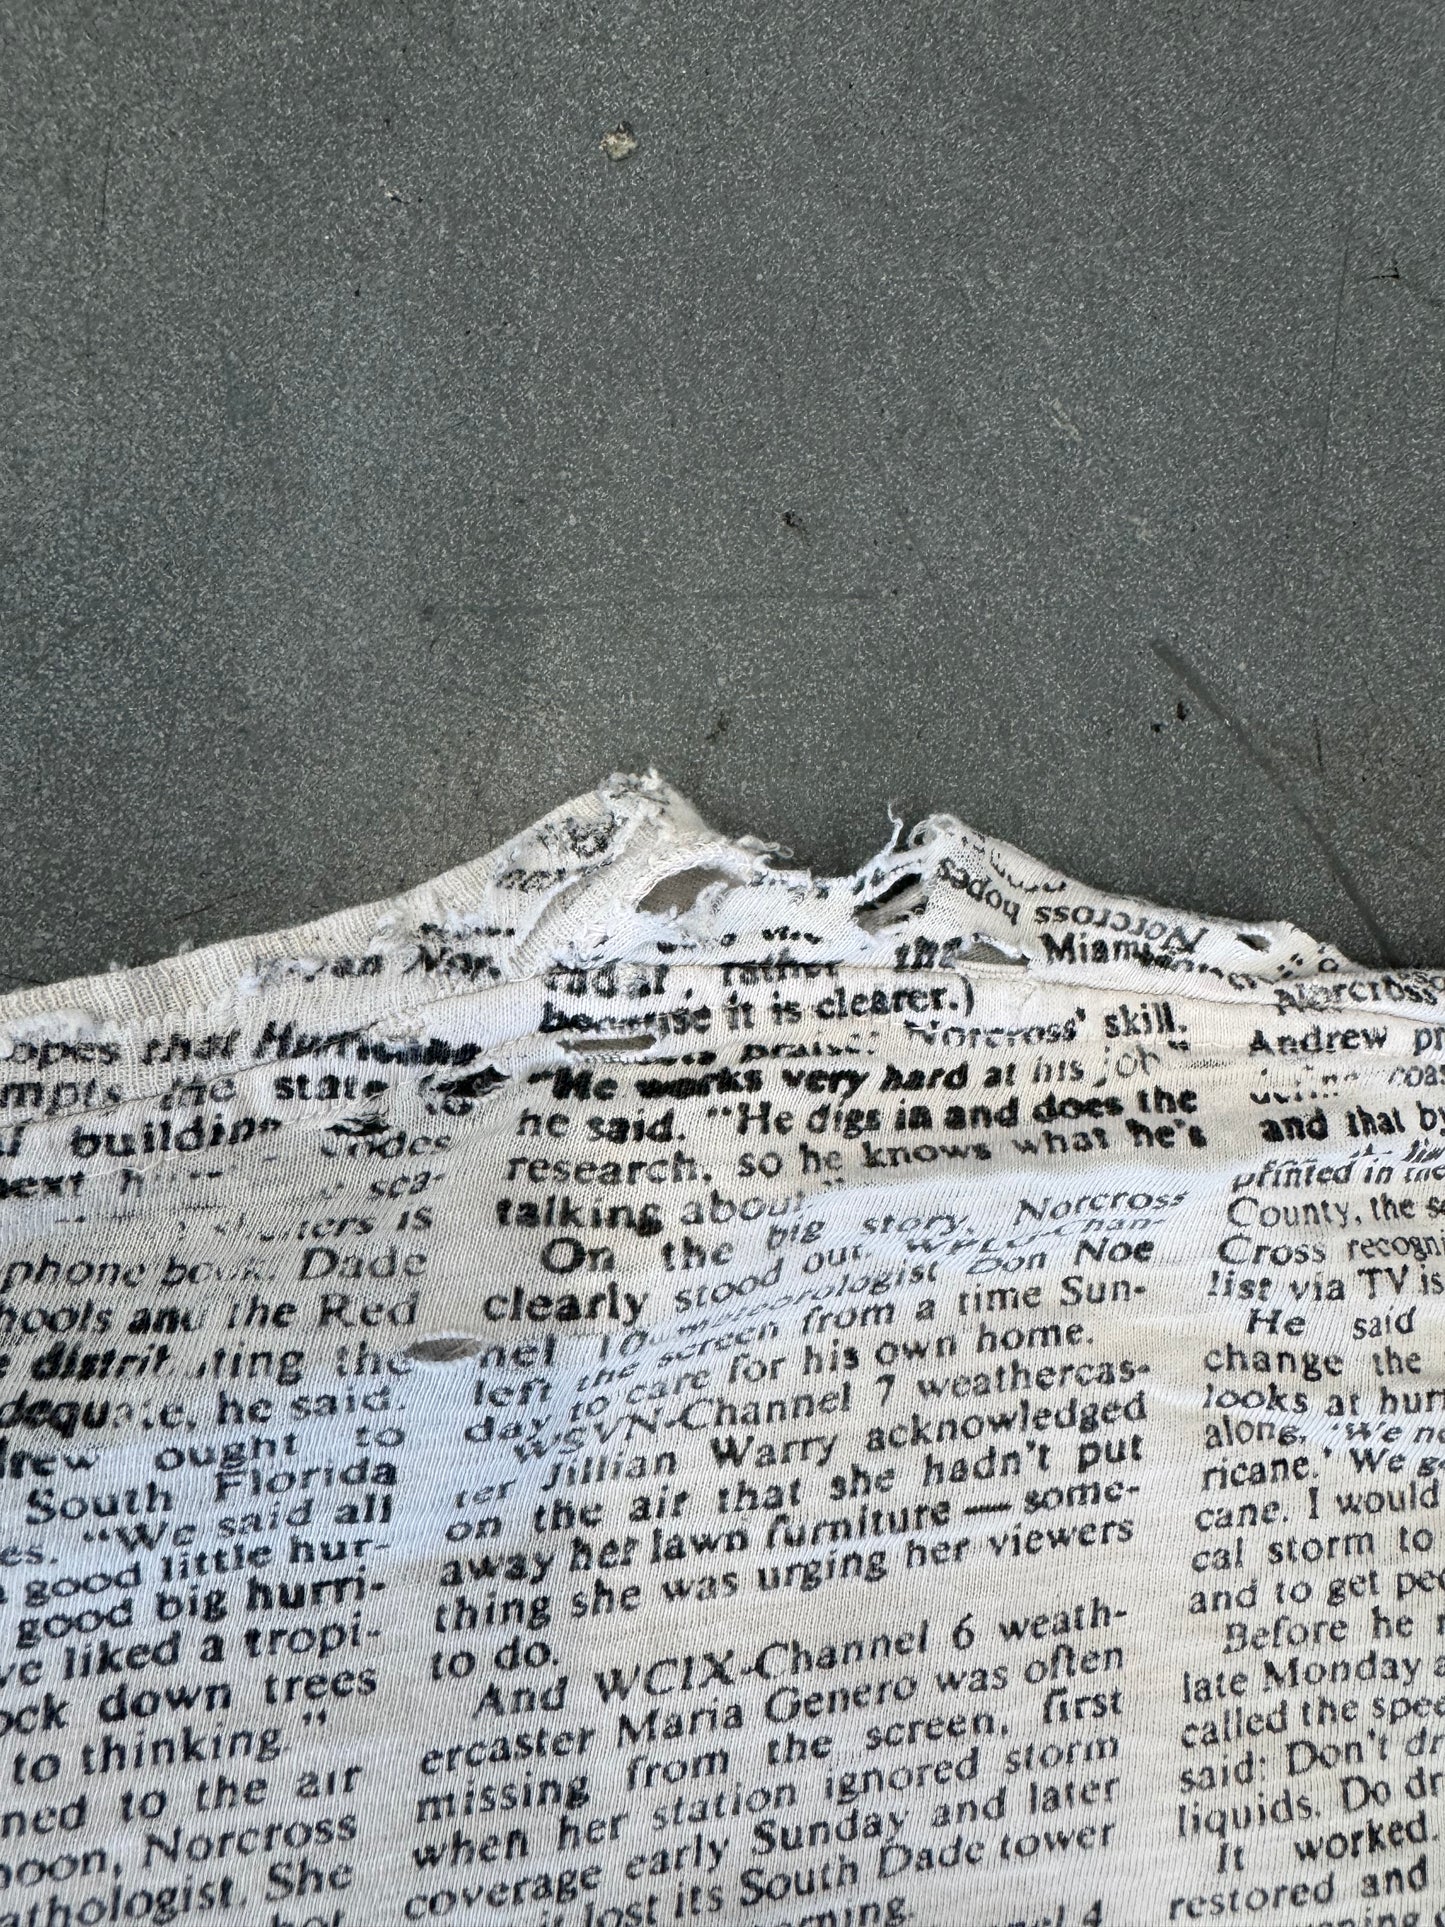 Norcross hopes
opes that
mpts the state to
building codes
next
sca-
is
phone book. Dade
hools and the Red
distributing the
dequate, he said.
drew ought to
South Florida
es. "We said all
good little hur-
good big hurri-
ve liked a tropi-
ock down trees
to thinking."
ned to the air
noon, Norcross
athologist. She
rather the Miami
because it is clearer.)
praise: Norcross' skill.
"He works very hard at his job,"
he said. "He digs in and does the
research, so he knows what he's
talking about."
On the big story, Norcross
clearly stood out. WPLG-Chan-
nel 10 meteorologist Don Noe
left the screen from a time Sun-
day to care for his own home.
WSVN-Channel 7 weathercas-
ter Jillian Warry acknowledged
on the air that she hadn't put
away her lawn furniture — some-
thing she was urging her viewers
to do.
And WCIX-Channel 6 weath-
ercaster Maria Genero was often
missing from the screen, first
when her station ignored storm
coverage early Sunday and later
it lost its South Dade tower
Norcross
Andrew pr
and that by
printed in the
County, the s
Cross recogni
list via TV is
He said
change the
looks at hurr
along, 'We ne
ricane.' We ge
cane. I would
cal storm to
and to get peo
Before he
late Monday a
called the spee
said: Don't dr
liquids. Do dr
It worked.
restored and